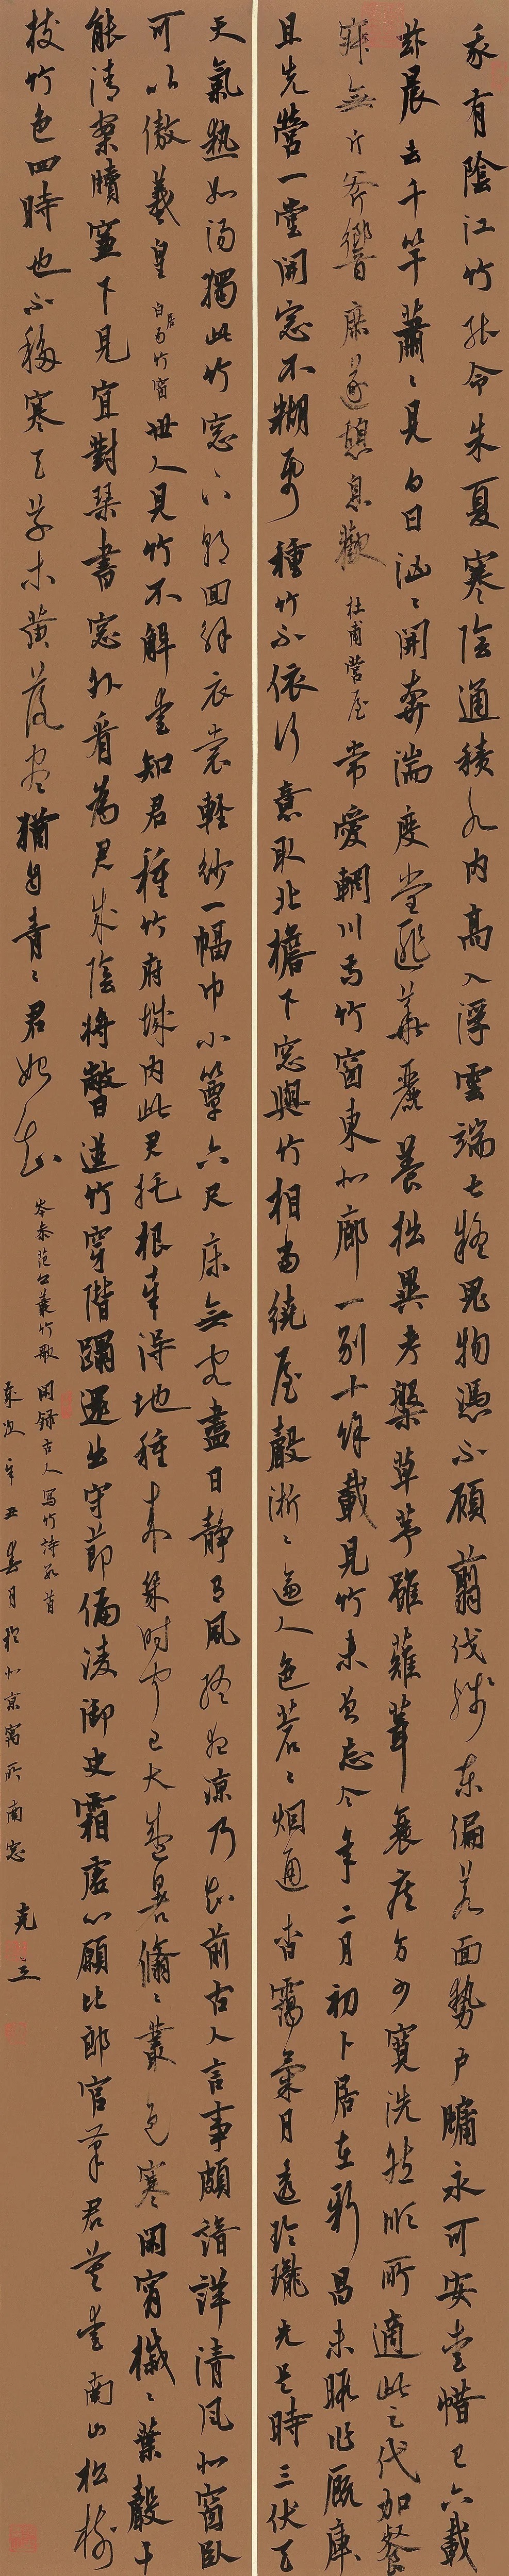 我有陰江竹能令朱夏寒陰通積水內高入浮雲端甚疑鬼物憑不顧翦伐殘東偏若面勢戶牖永可安愛惜已六載
茲晨去千竿蕭蕭見白日洶洶開奔湍度堂匪華麗養拙異考槃草茅雖薙葺衰疾方少寬洗然順所適此足代加餐
寂無斤斧響庶遂憩息歡 杜甫營屋 常愛輞川寺竹窗東北廊一別十餘載見竹未曾忘今年二月初卜居在新昌未暇作廐庫
且先營一堂開窗不糊紙種竹不依行意取北檐下窗與竹相當繞屋聲淅淅逼人色蒼蒼烟通杳靄氣月透玲瓏光是時三伏天
天氣熱如湯獨此竹窗下朝回解衣裳輕紗一幅巾小簟六尺床無客盡日靜有風終夜涼乃知前古人言事頗諳詳清風北窗臥
可以傲羲皇 白居易竹窗 世人見竹不解愛知君種竹府城內此君托根幸得地種來幾時聞已大盛暑翛翛叢色寒閑宵槭槭葉聲干
能清案牘簾下見宜對琴書窗外看為君成陰將蔽日迸竹穿階踏還出守節偏凌御史霜虛心願比郎官筆君莫愛南山松樹
枝竹色四時也不移寒天草木黃落盡猶自青青君始知 岑參范公叢竹歌 閑錄古人寫竹詩數首
歲次辛丑春月於北京寓所南窗 堯立